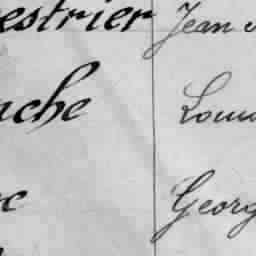 estrier Jean
nche Loui
c Georg